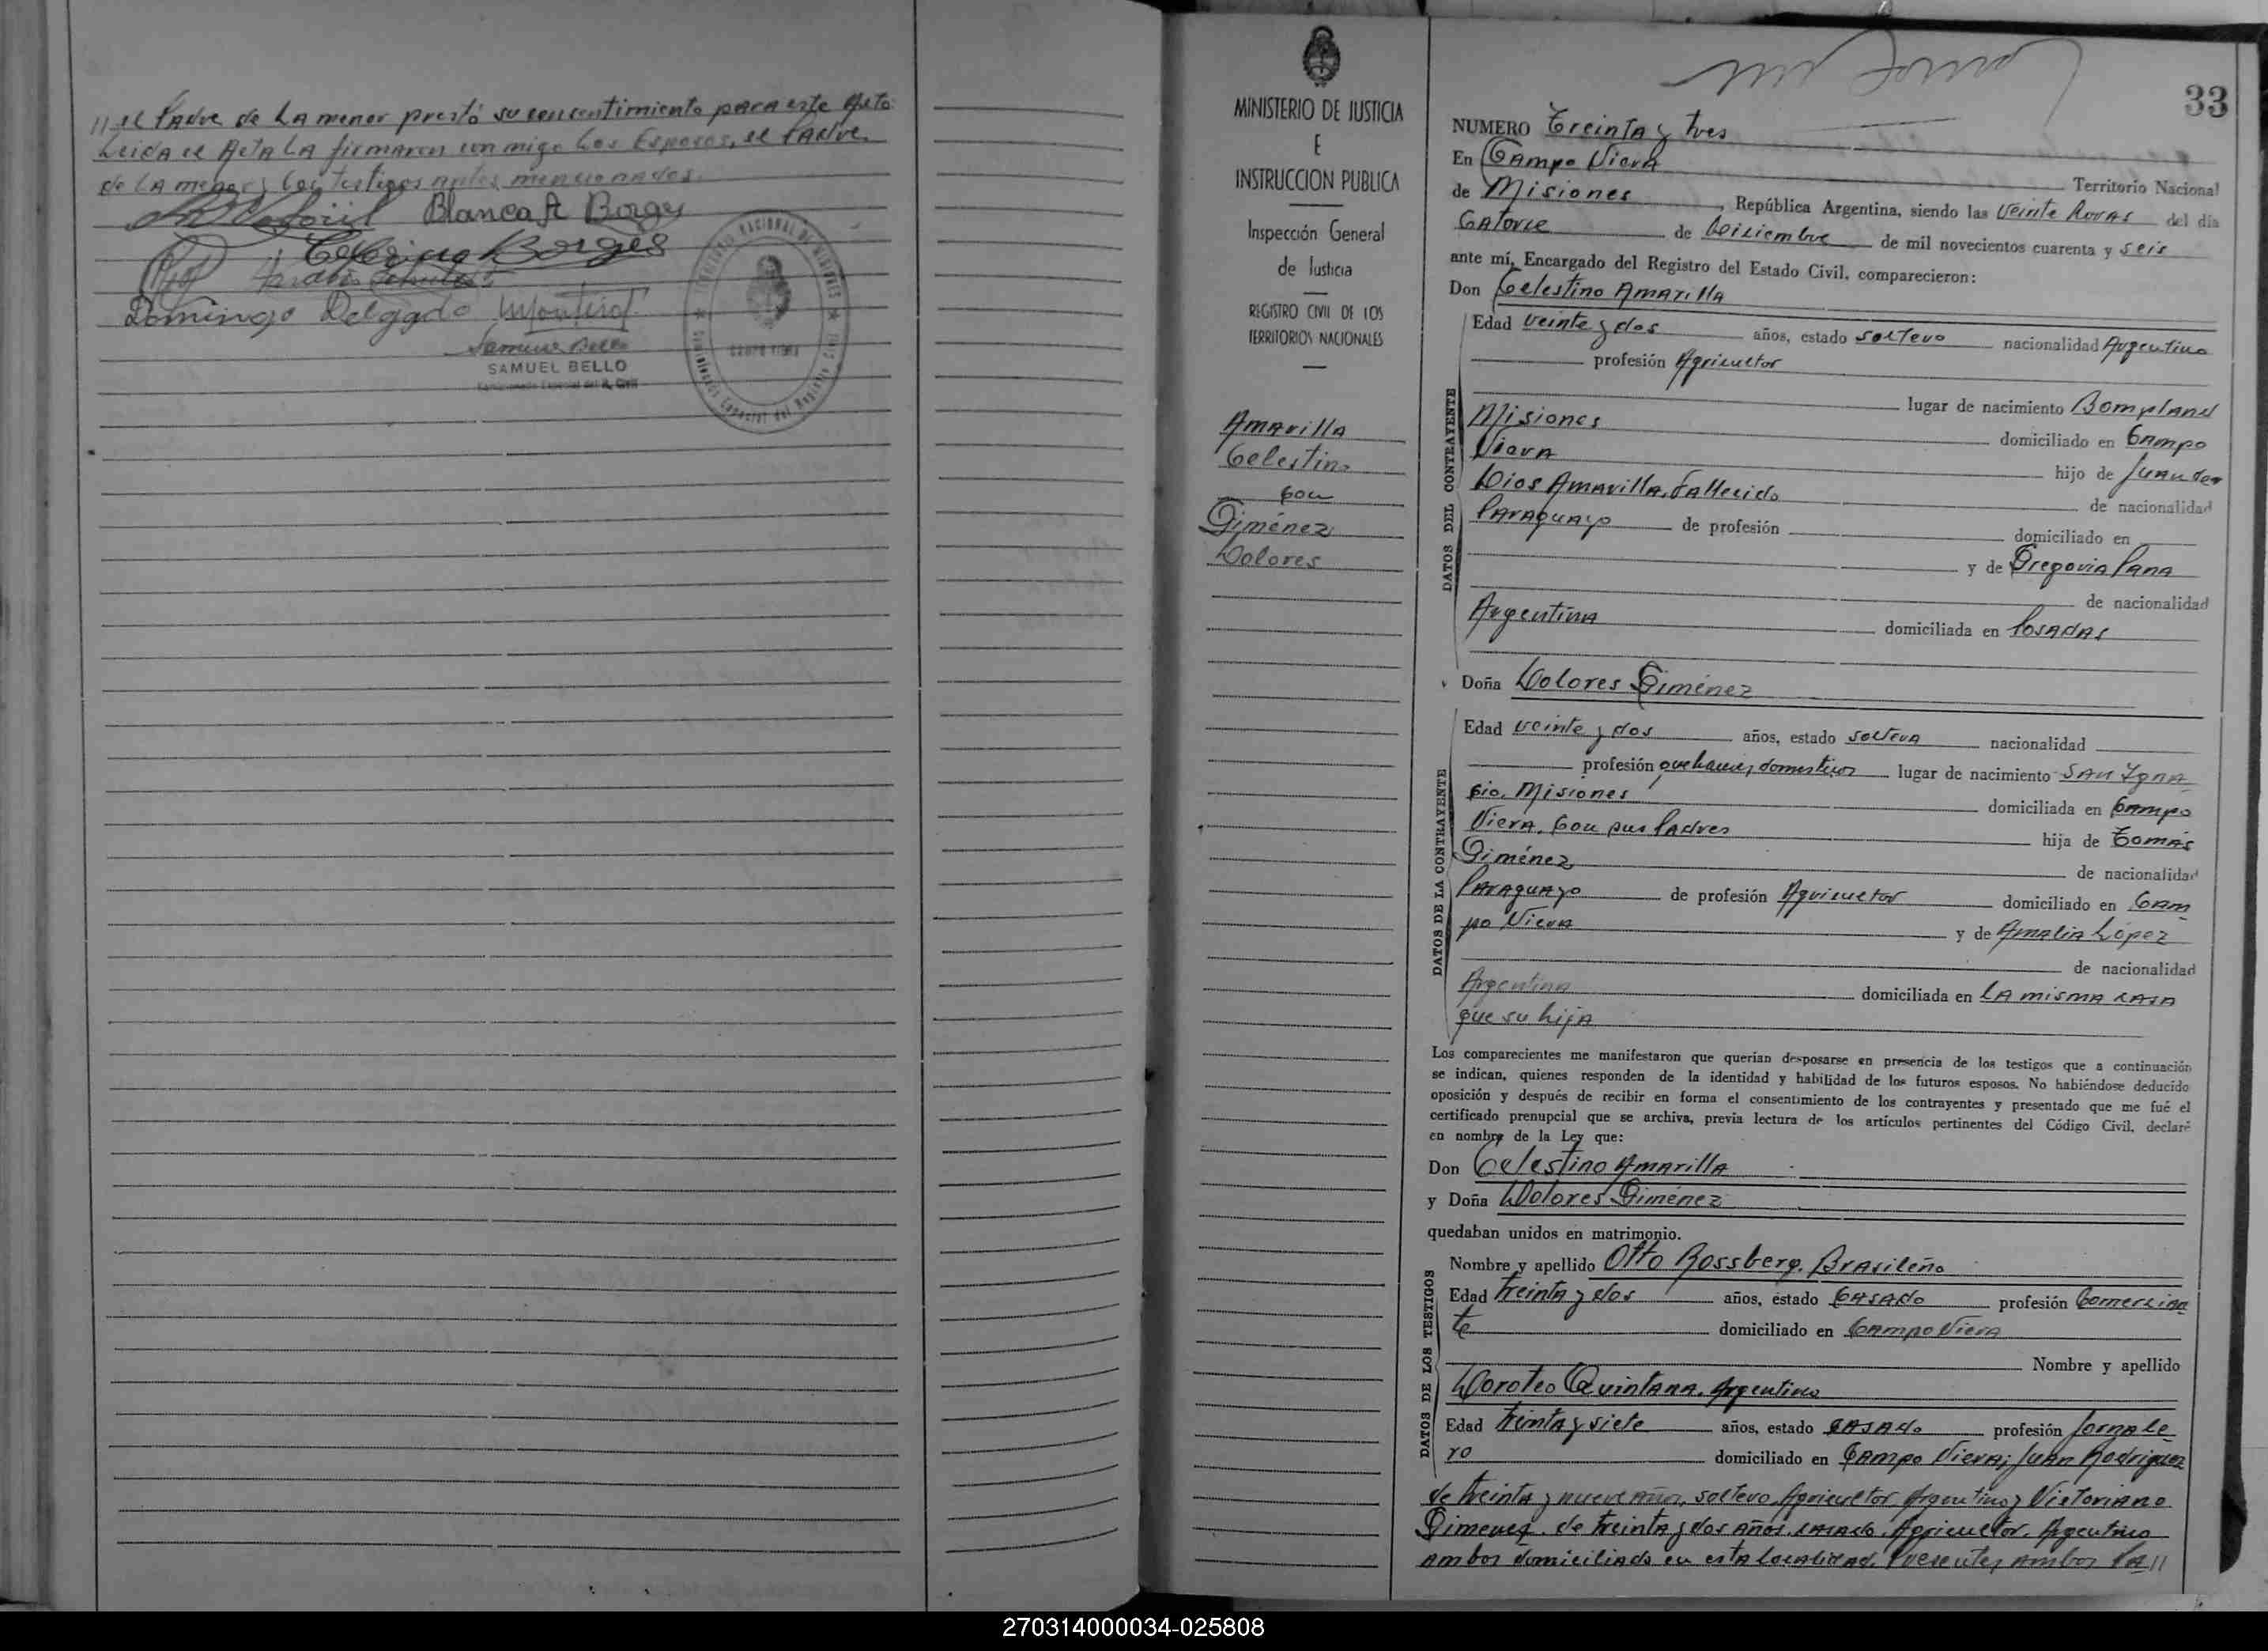 // el Padre de la menor prestó su consentimiento para este Acto.
Leida el Acta la firmaron conmigo los Esposos, el Padre
de la menor y los testigos antes mencionados.
Blanca A Borges
Borges
Domingo Delgado
Samuel Bello
SAMUEL BELLO
Comisionado Especial del R. Civil
CAMPO VIERA
MINISTERIO DE JUSTICIA
E
INSTRUCCION PUBLICA
Inspección General
de Justicia
REGISTRO CIVIL DE LOS
TERRITORIOS NACIONALES
Amarilla
Celestino
con
Giménez
Dolores
33
NUMERO Treinta y tres
En Campo Viera
Territorio Nacional
de Misiones, República Argentina, siendo las veinte horas del día
Catorce de Diciembre de mil novecientos cuarenta y seis
ante mí, Encargado del Registro del Estado Civil, comparecieron:
Don Celestino Amarilla
DATOS DEL CONTRAYENTE
Edad veinte y dos años, estado soltero nacionalidad Argentino
profesión Agricultor
lugar de nacimiento Bompland
Misiones domiciliado en Campo
Viera hijo de Juan de
Dios Amarilla, fallecido de nacionalidad
Paraguayo de profesión domiciliado en
y de Gregoria
de nacionalidad
Argentina domiciliada en Posadas
Doña Dolores Giménez
DATOS DE LA CONTRAYENTE
Edad veinte y dos años, estado soltera nacionalidad
profesión quehaceres domesticos lugar de nacimiento San Igna
cio, Misiones domiciliada en Campo
Viera, con sus Padres hija de Tomás
Giménez de nacionalidad
Paraguayo de profesión Agricultor domiciliado en Cam
po Viera y de Amalia López
de nacionalidad
Argentina domiciliada en la misma casa
que su hija
Los comparecientes me manifestaron que querían desposarse en presencia de los testigos que a continuación
se indican, quienes responden de la identidad y habilidad de los futuros esposos. No habiéndose deducido
oposición y después de recibir en forma el consentimiento de los contrayentes y presentado que me fué el
certificado prenupcial que se archiva, previa lectura de los artículos pertinentes del Código Civil, declaré
en nombre de la Ley que:
Don Celestino Amarilla
y Doña Dolores Giménez
quedaban unidos en matrimonio.
DATOS DE LOS TESTIGOS
Nombre y apellido Otto Rossberg. Brasileño
Edad treinta y dos años, estado casado profesión Comercian
te domiciliado en Campo Viera
Nombre y apellido
Doroteo Quintana. Argentino
Edad treinta y siete años, estado casado profesión Jornale
ro domiciliado en Campo Viera; Juan Rodriguez
de treinta y nueve años, soltero, Agricultor Argentino y Victoriano
Gimenez. de treinta y dos años, casado, Agricultor, Argentino
ambos domiciliado en esta localidad. Presentes ambos Pa//
270314000034-025808